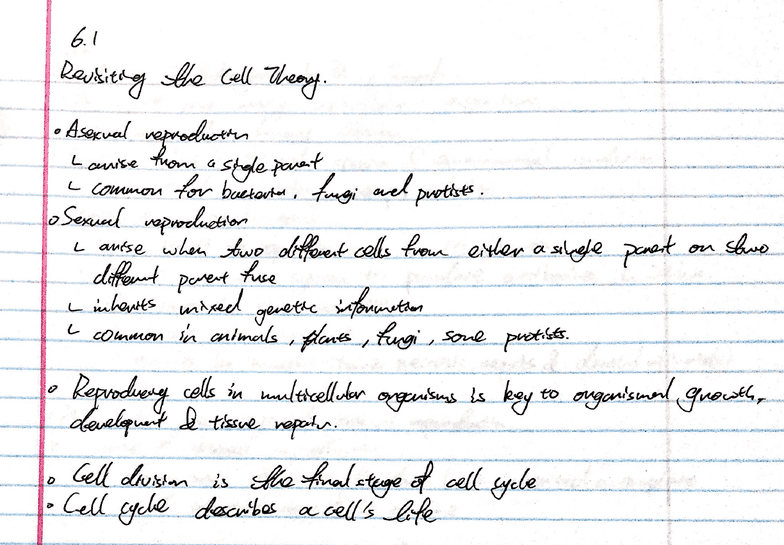 6.1
Revisiting the Cell Theory.
• Asexual reproduction
└ arise from a single parent
└ common for bacteria, fungi and protists.
• Sexual reproduction
└ arise when two different cells from either a single parent or two
different parent fuse
└ inherits mixed genetic information
└ common in animals, plants, fungi, some protists.
• Reproducing cells in multicellular organisms is key to organismal growth,
development & tissue repair.
• Cell division is the final stage of cell cycle
• Cell cycle describes a cell's life